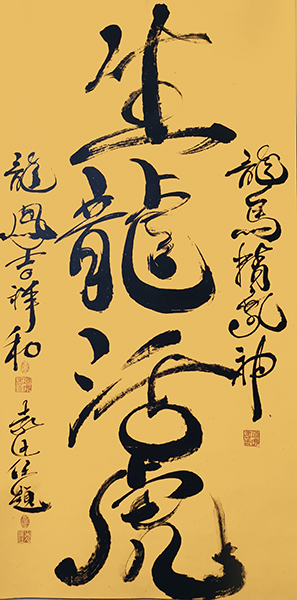 龍馬精氣神
生龍活虎
龍鳳吉祥和
袁題